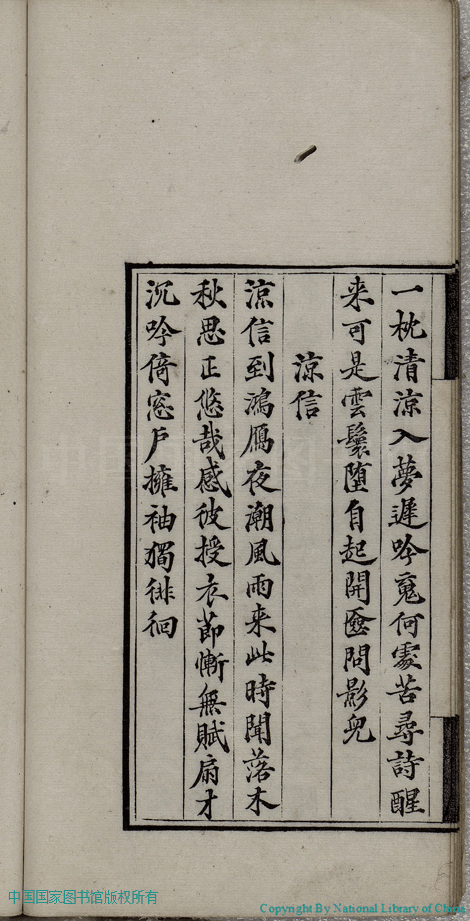 一枕清涼入夢遲吟䰟何處苦尋詩醒
来可是雲鬟墮自起開匳問影兒
涼信
涼信到鴻鴈夜潮風雨来此時聞落木
秋思正悠哉感彼授衣節慚無賦扇才
沉吟倚窓戶擁袖獨徘徊
中国国家图书馆版权所有
Copyright By National Library of China